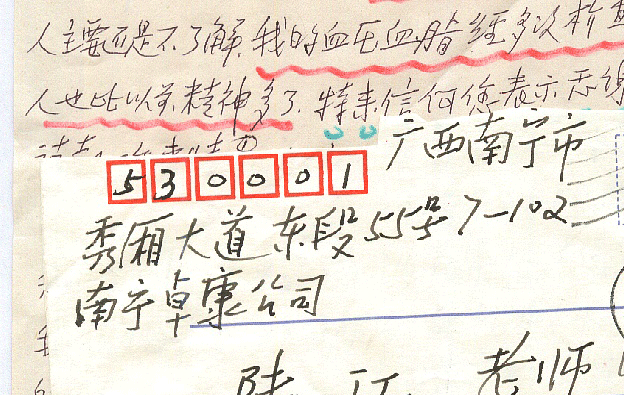 人主要还是不了解，我的血压血脂经多次检查
人也比以前精神多了。特来信向您表示感谢
广西南宁市
530001
秀厢大道东段55号7-102
南宁卓康公司
陆 江 老师